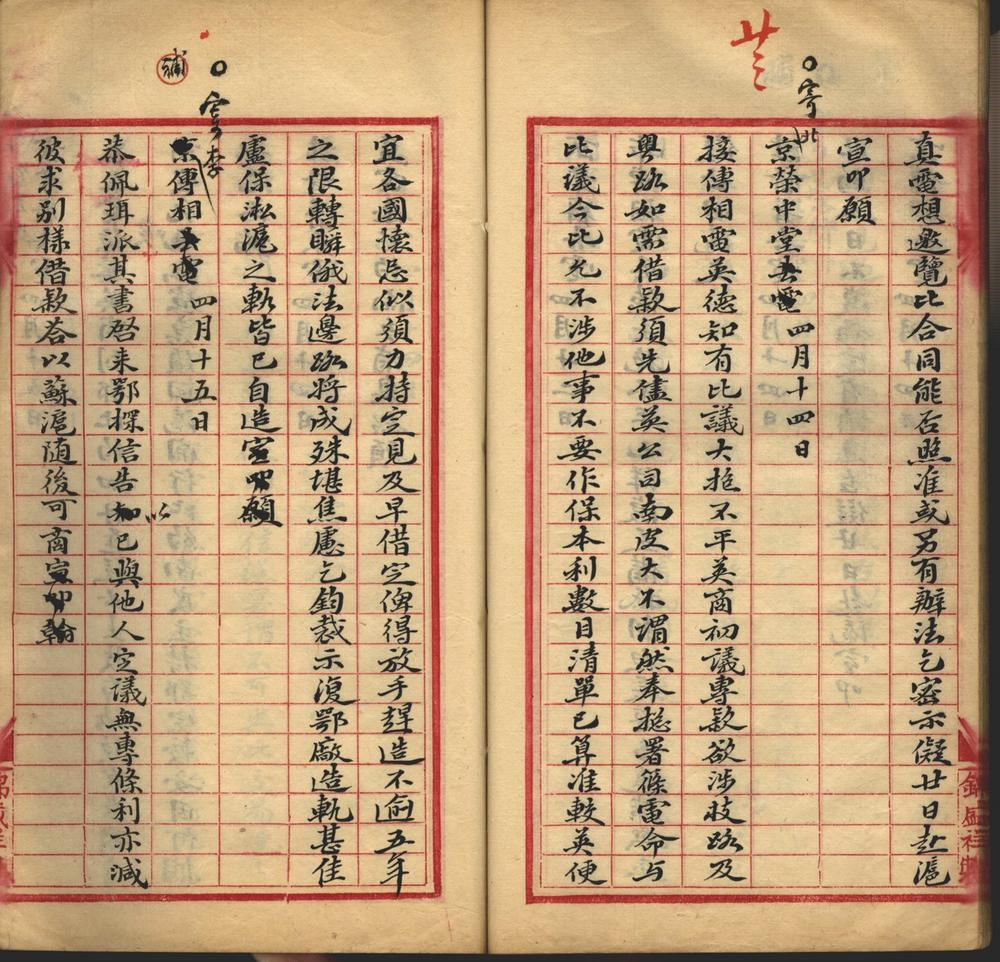 真電想邀覽比合同能否照准或另有辦法乞密示儗廿日赴滬
宣叩願
寄北
京榮中堂去電四月十四日
接傅相電英德知有比議大抱不平英商初議專款欲涉枝路及
粵路如需借款須先儘英公司南皮大不謂然奉總署篠電命与
比議今比允不涉他事不要作保本利數目清單已算准較英便
宜各國懷忌似須力持定見及早借定俾得放手趕造不逾五年
之限轉瞬俄法邊路將成殊堪焦慮乞鈞裁示復鄂廠造軌甚佳
盧保淞滬之軌皆已自造宣叩願
補
寄李
京傅相去電 四月十五日
恭佩珥派其書啓来鄂探信告知以已與他人定議無專條利亦減
彼求別樣借款答以蘇滬随後可商宣叩翰
錦盛祥